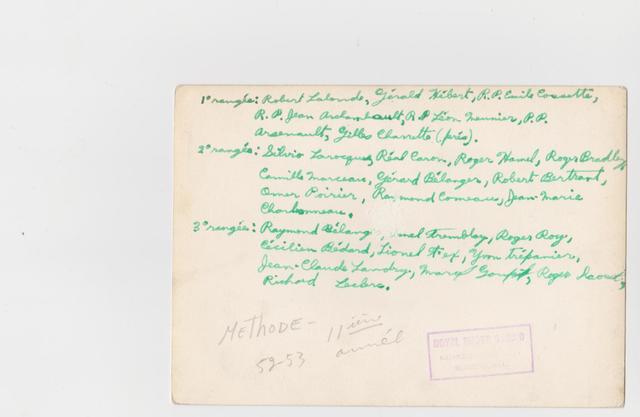 1º rangée: Robert Lalonde, Gérald Hébert, R.P. Emile Cossette,
R.P. Jean Archambault, R.P. Léon Meunier, P.P.
Arsenault, Gilles Charette (prés).
2º rangée: Silvio Larocque, Réal Caron, Roger Hamel, Roger Bradley,
Camille Marceau, Gérard Bélanger, Robert Bertrant,
Omer Poirier, Raymond Comeau, Jean-Marie
Charbonneau.
3º rangée: Raymond Tremblay, Roger Roy,
Cécilien Bédard, Lionel Yvon Trépanier,
Jean-Claude Landry, Roger
Richard Leclerc.
METHODE - 11ième
52-53 année
ROYAL STUDIO